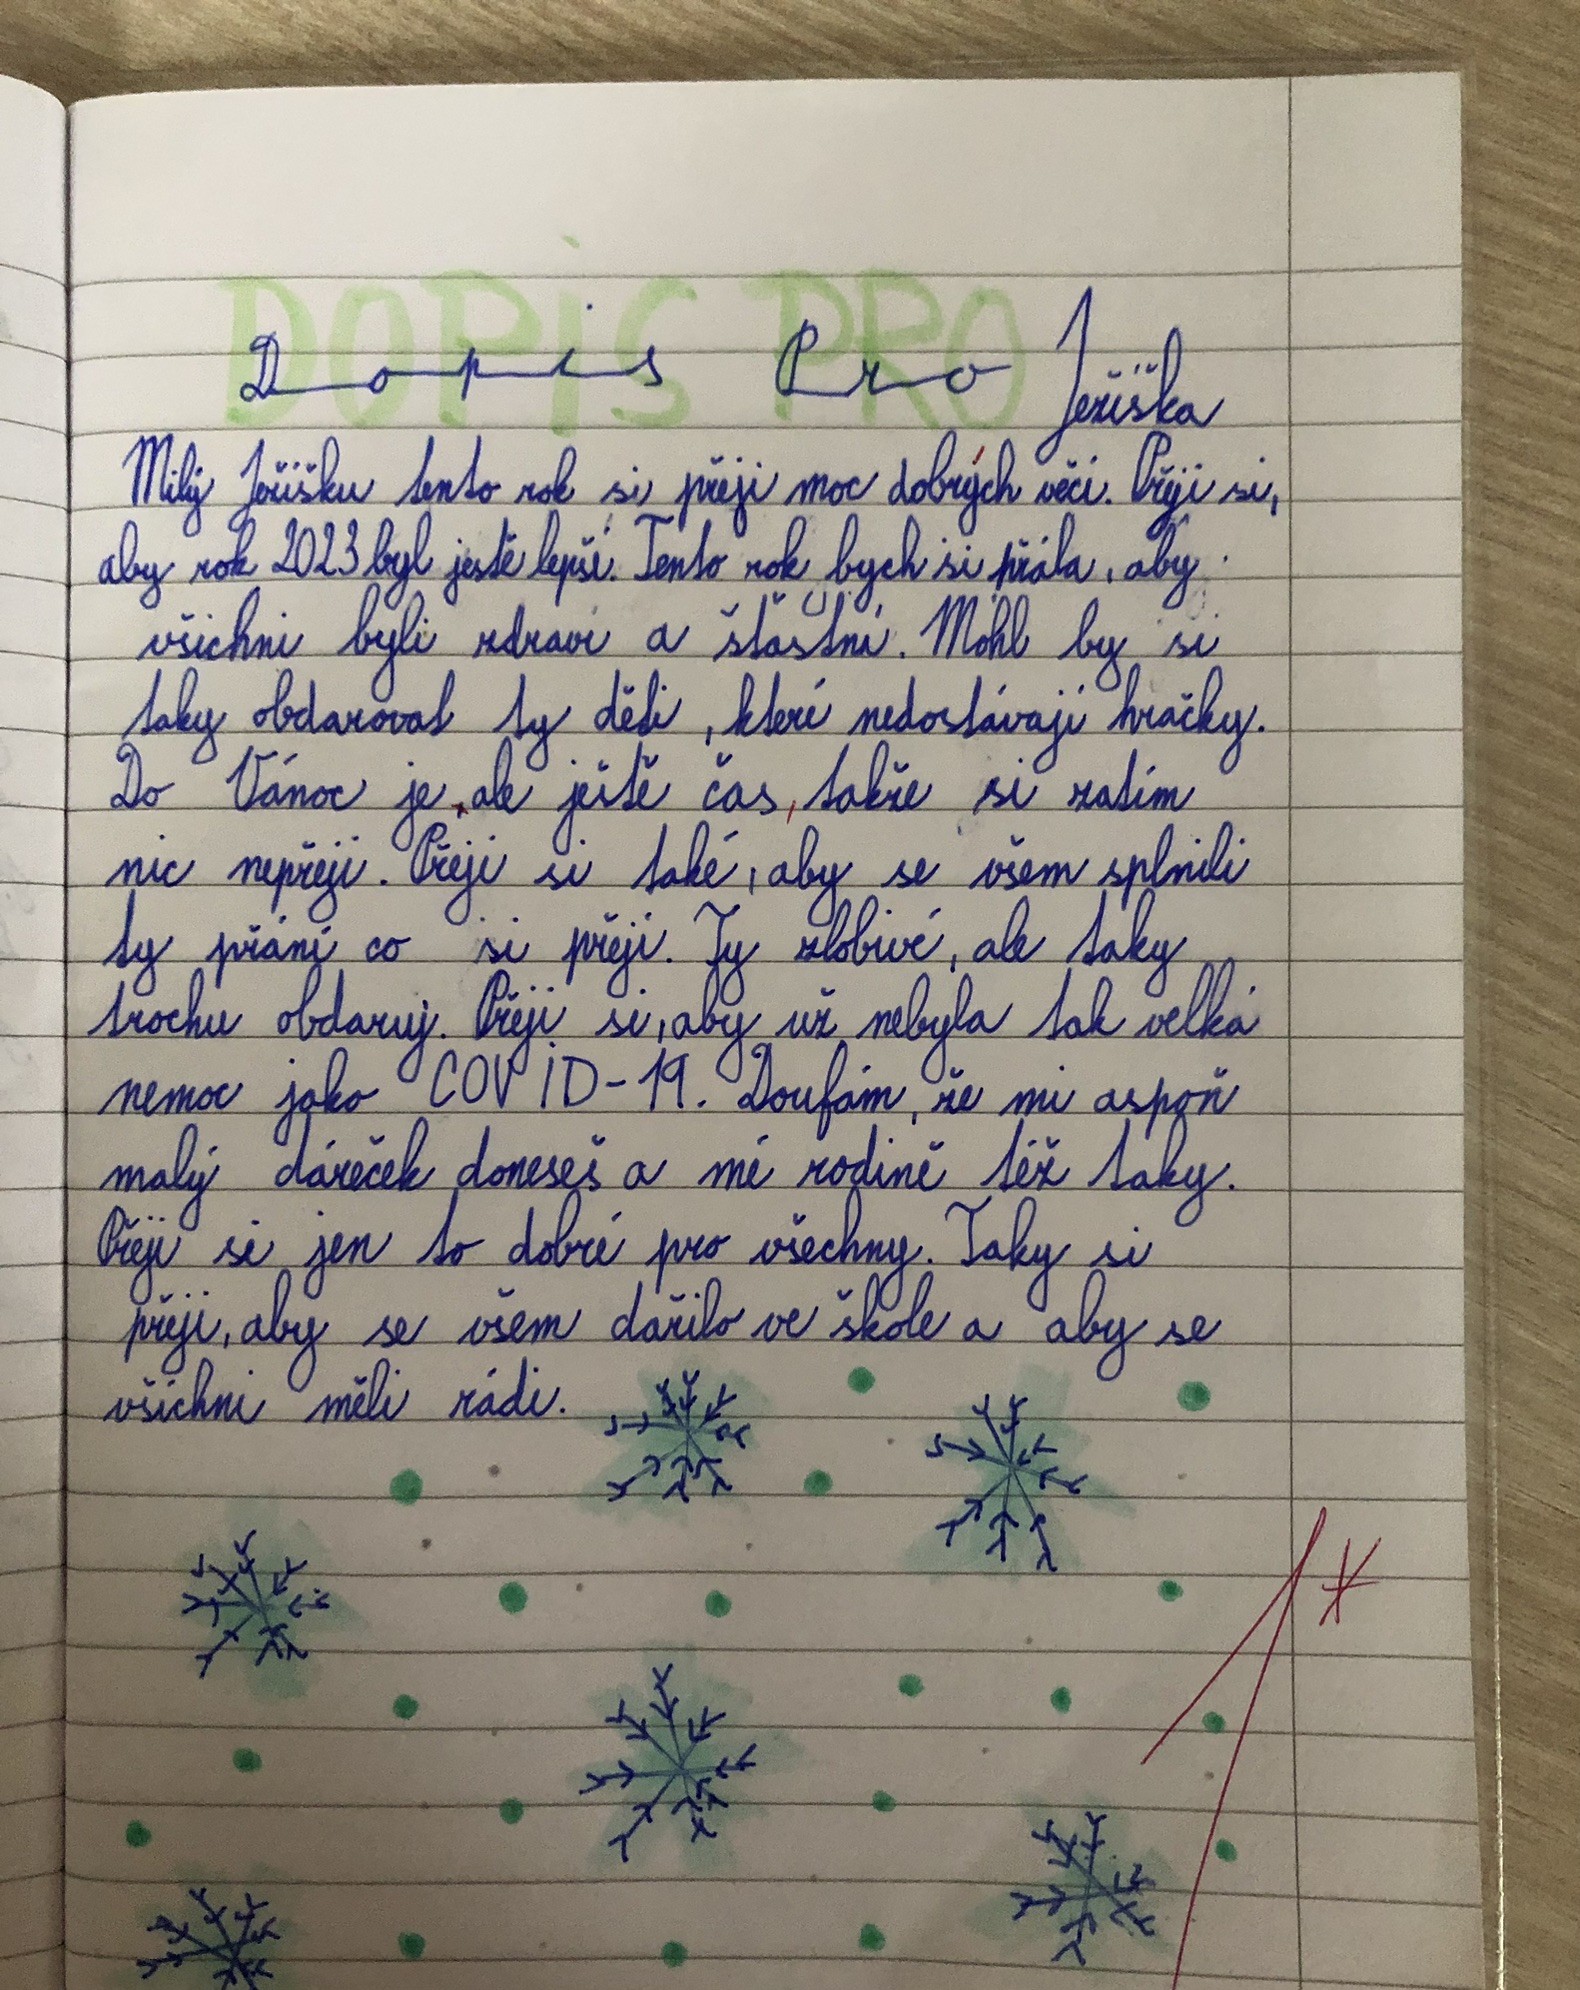 DOPIS PRO
Dopis Pro Ježíška
Milý Ježíšku tento rok si přeji moc dobrých věcí. Přeji si,
aby rok 2023 byl jestě lepší. Tento rok bych si přála, aby
všichni byli zdraví a šťastní. Mohl by si
taky obdarovat ty děti, které nedostávají hračky.
Do Vánoc je, ale ještě čas, takže si zatím
nic nepřeji. Přeji si také, aby se všem splnili
ty přání co si přejí. Ty zlobivé, ale taky
trochu obdaruj. Přeji si, aby už nebyla tak velká
nemoc jako COVID-19. Doufám, že mi aspoň
malý dáreček doneseš a mé rodině též taky.
Přeji si jen to dobré pro všechny. Taky si
přeji, aby se všem dařilo ve škole a aby se
všichni měli rádi.
1*